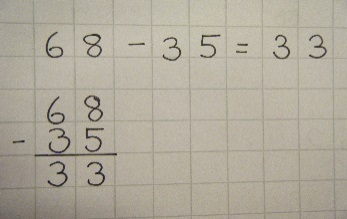 68 - 35 = 33
68
- 35
33